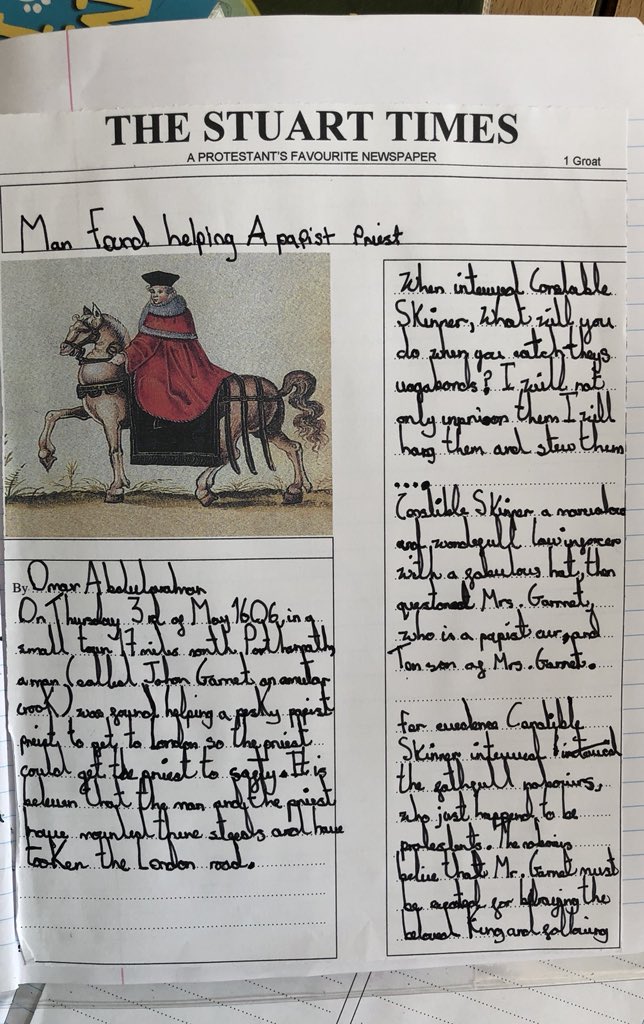 THE STUART TIMES
A PROTESTANT'S FAVOURITE NEWSPAPER
1 Groat
Man Found helping A papist Priest
By Omar Abdulrahman
On Thursday 3rd of May 1606, in a
small town 17 miles north,
a man (called John Garnet an
crook) was found helping a pesky papist
priest to get to London so the priest
could get the priest to safty. It is
that the man and the priest
have mounted there steeds and have
tooken the London road.
When Constable
Skinner, What will you
do when you catch theys
vagabonds? I will not
only inprison them I will
hang them and stew them
....
Skinner a
and wonderfull
with a fabulous hat, then
questoned Mrs. Garnet,
who is a papist cur, and
Tomson of Mrs. Garnet.
for
Skinner
the
who just happend to be
protestants. The
belive that Mr. Garnet must
be for the
beloved King and following